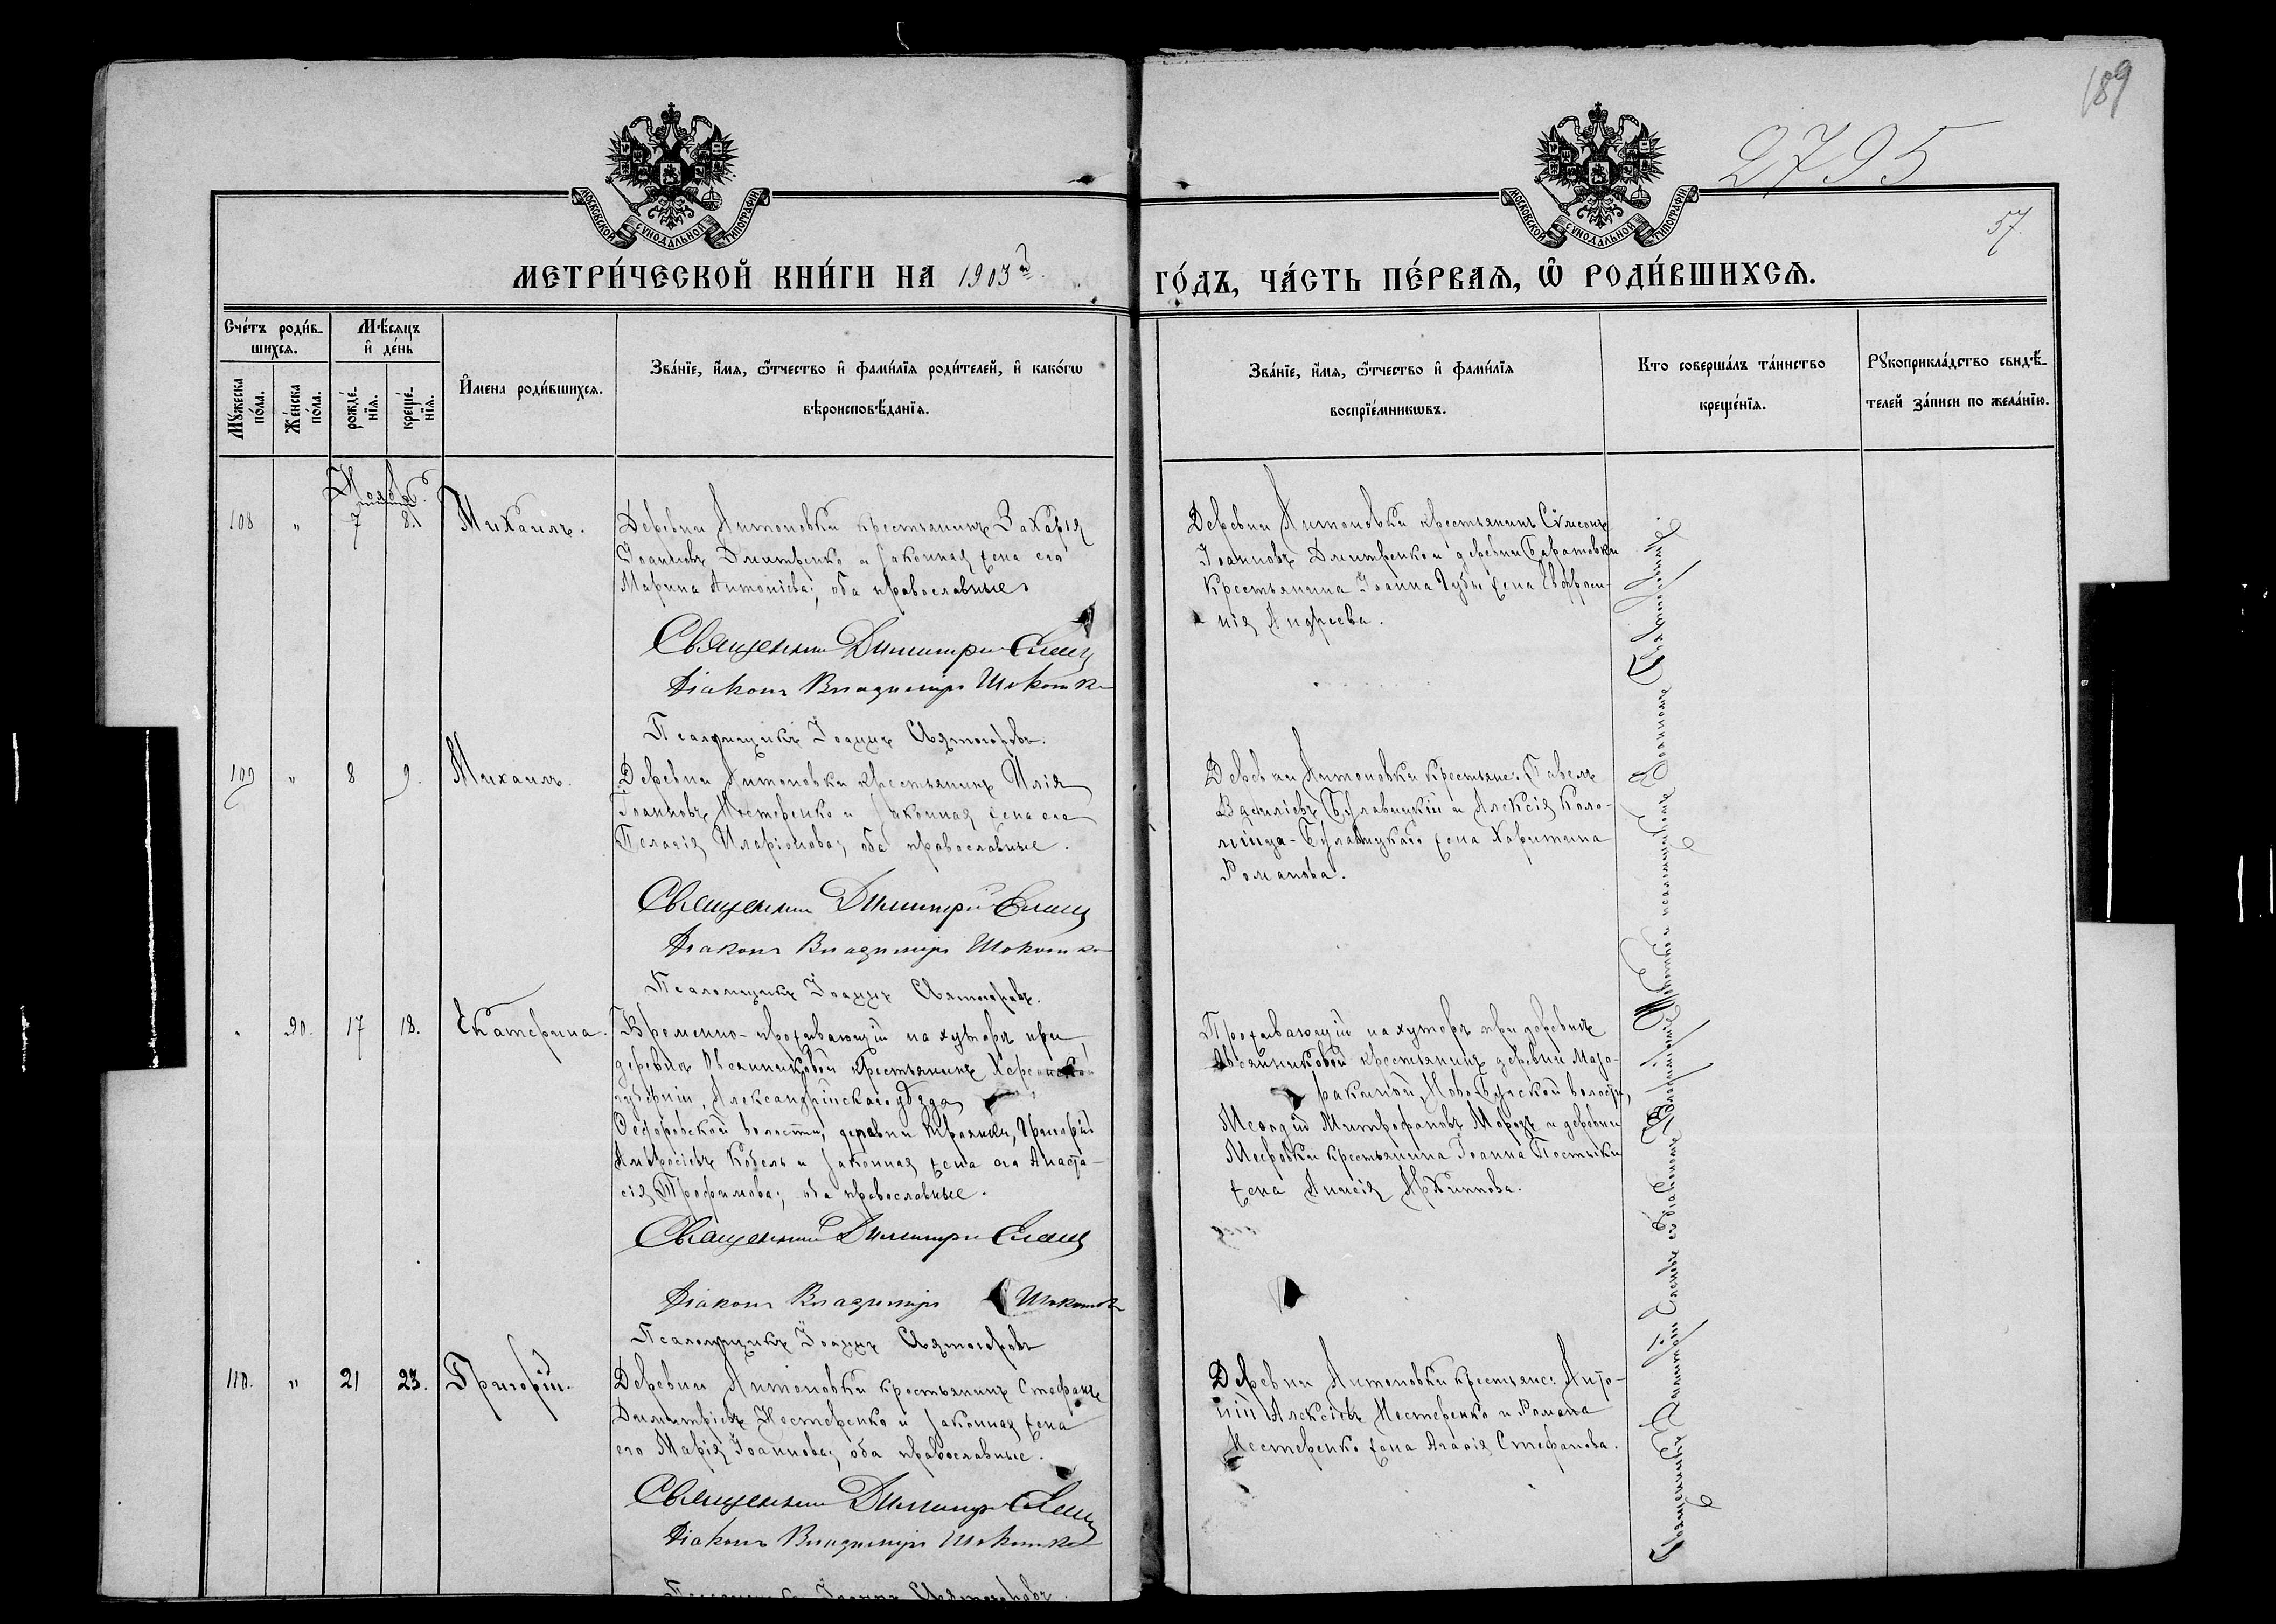 189
2795
57.
МОСКОВСКОЙ СѴНОДАЛЬНОЙ ТИПОГРАФІИ
МОСКОВСКОЙ СѴНОДАЛЬНОЙ ТИПОГРАФІИ
МЕТРИ́ЧЕСКОЙ КНИ́ГИ НА 1903й
ГО́ДЪ, ЧА́СТЬ ПЕ́РВАѦ, Ѡ РОДИ́ВШИХСѦ.
Сче́тъ роди́в-
шихсѧ.
Мѣ́сѧцъ
и҆ де́нь
Мꙋ́жеска
по́ла.
Же́нска
по́ла.
рожде́-
нїѧ.
креще́-
нїѧ.
И҆мена роди́вшихсѧ.
Зва́нїе, и҆́мѧ, ѻ҆́тчество и҆ фами́лїѧ роди́телей, и҆ како́гѡ
вѣроисповѣ́данїѧ.
Зва́нїе, и҆́мѧ, ѻ҆́тчество и҆ фами́лїѧ
воспрїе́мникѡвъ.
Кто соверша́лъ та́инство
креще́нїѧ.
Рꙋкоприкла́дство свидѣ́-
телей за́писи по жела́нїю.
Ноябрь
108 " 7 8. Михаилъ.
Деревни Антоновки крестьянинъ Захарія
Іоанновъ Дмитренко и законная жена его
Марина Антоніева; оба православные
Священникъ Димитрій
Діаконъ Владиміръ
Псаломщикъ Іоаннъ Святогоровъ.
Деревни Антоновки крестьянинъ Сѵмеонъ
Іоанновъ Дмитренко и деревни Баратовки
крестьянина Іоанна Губы жена Евфроси-
нія Андреева.
109 " 8 9. Михаилъ.
Деревни Антоновки крестьянинъ Илія
Іоанновъ Нестеренко и законная жена его
Пелагія Иларіонова; оба православные.
Священникъ Димитрій
Діаконъ Владиміръ
Псаломщикъ Іоаннъ Святогоровъ.
Деревни Антоновки крестьяне: Павелъ
Василіевъ Булавицкій и Алексія Коло-
мійца-Булавицкаго жена Харитина
Романова.
" 90. 17 18. Екатерина.
Временно-проживающій на хуторѣ при
деревнѣ Овсянниковой крестьянинъ Херсонской
губерніи, Александрійскаго уѣзда,
Ѳедоровской волости, деревни Григорій
Амвросіевъ Кобель и законная жена его Анаста-
сія Трофимова; оба православные.
Священникъ Димитрій
Діаконъ Владиміръ
Псаломщикъ Іоаннъ Святогоровъ
Проживающій на хуторѣ при деревнѣ
Овсянниковой крестьянинъ деревни
Ново-Бугской волости,
Меѳодій Митрофановъ Морозъ и деревни
крестьянина Іоанна Постыки
жена Анисія Архиппова.
110. " 21 23. Григорій.
Деревни Антоновки крестьянинъ Стефанъ
Димитріевъ Нестеренко и законная жена
его Марія Іоаннова; оба православные.
Священникъ Димитрій
Діаконъ Владиміръ
Псаломщикъ Іоаннъ Святогоровъ.
Деревни Антоновки крестьяне: Анто-
ній Алексіевъ Нестеренко и Романа
Нестеренко жена Агафія Стефанова.
Священникъ Димитрій съ діакономъ Владиміромъ и псаломщикомъ Іоанномъ Святогоровымъ.